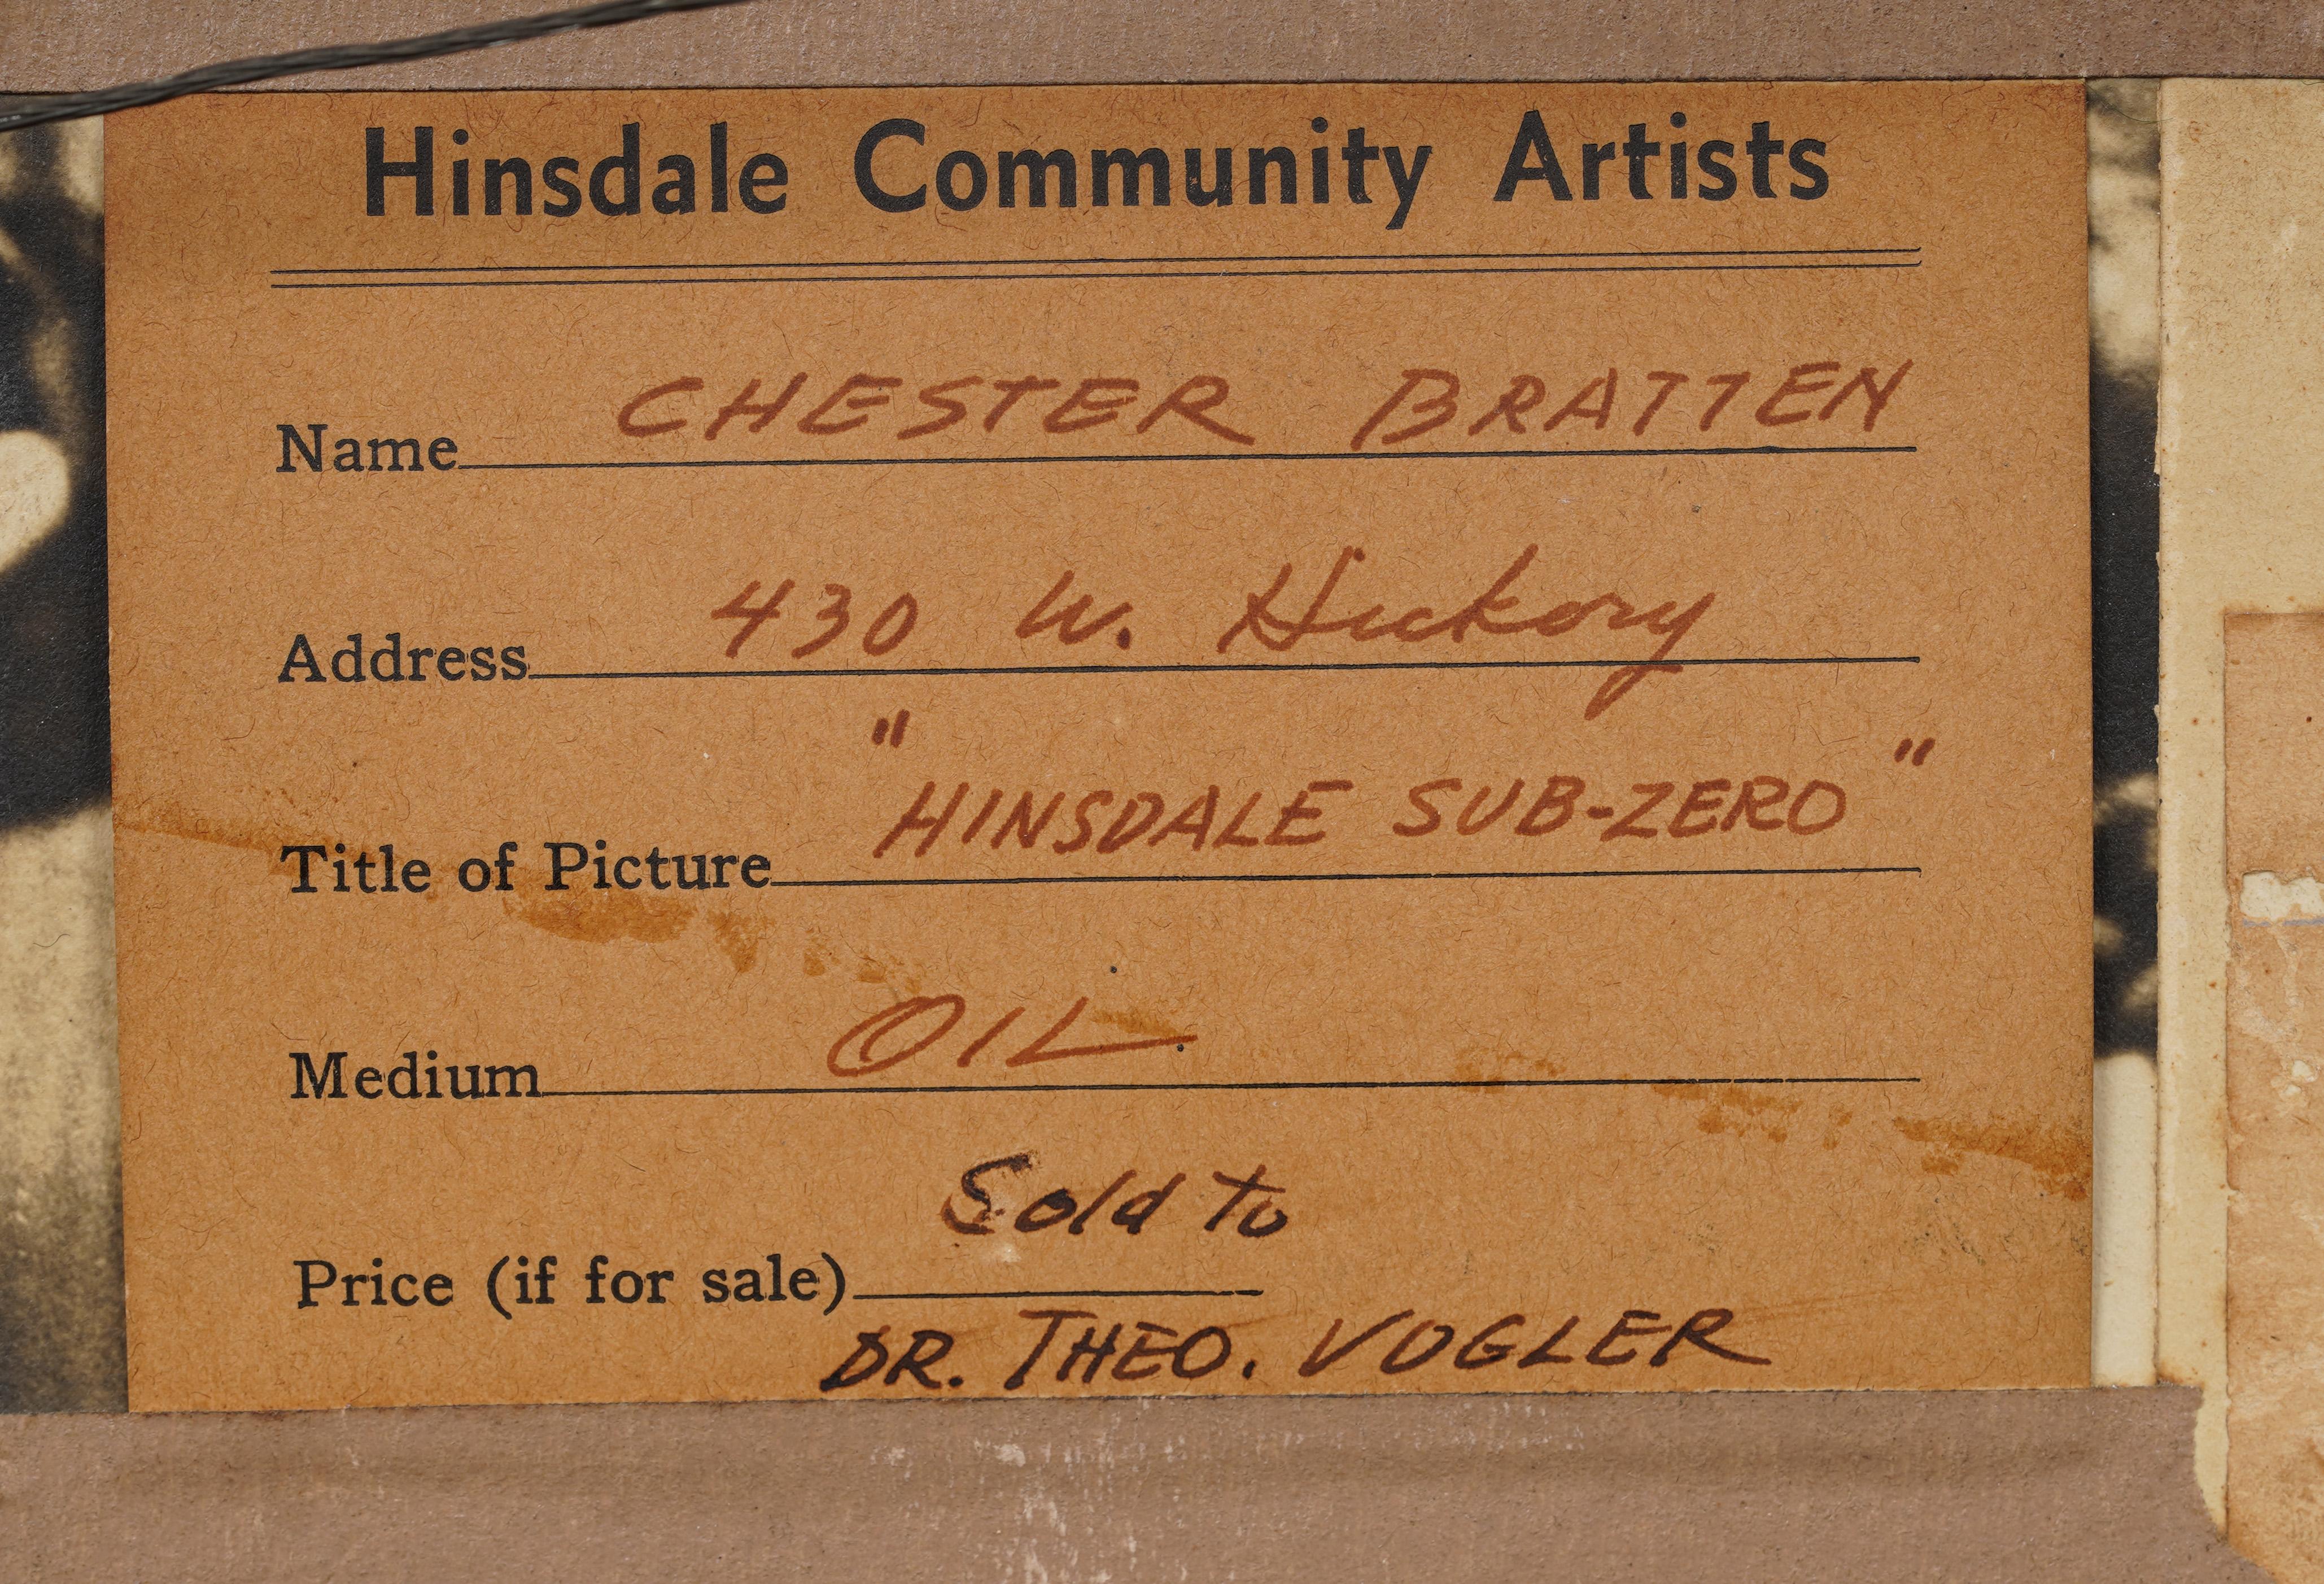 Hinsdale Community Artists
Name CHESTER BRATTEN
Address 430 W. Hickory
Title of Picture "HINSDALE SUB-ZERO"
Medium OIL
Sold to
Price (if for sale)
DR. THEO. VOGLER